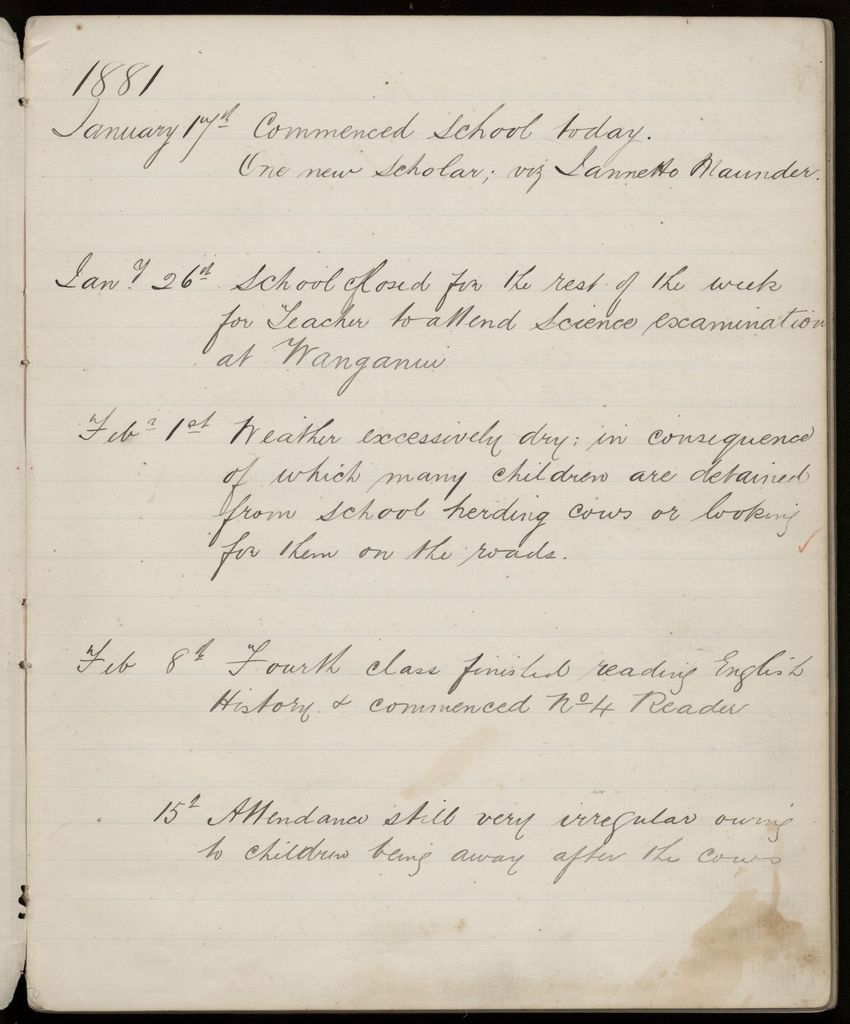 1881
January 17th Commenced school today.
One new scholar; viz Jannetto Maunder.
Jany 26th School closed for the rest of the week
for Teacher to attend Science examination
at Wanganui
Feby 1st Weather excessively dry: in consequence
of which many children are detained
from school herding cows or looking
for them on the roads.
Feb 8th Fourth class finished reading English
History & commenced No 4 Reader
15th Attendance still very irregular owing
to children being away after the cows